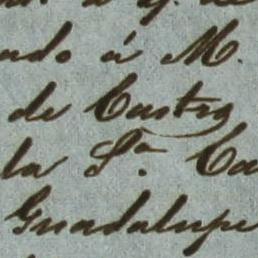 ado á M.
de Castro
la S.ª Ca
Guadalupe